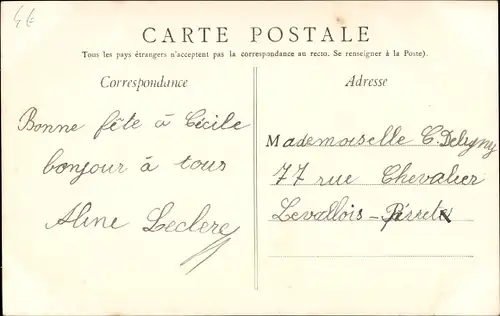 4€
CARTE POSTALE
Tous les pays étrangers n'acceptent pas la correspondance au recto. Se renseigner à la Poste).
Correspondance
Adresse
Bonne fête à Cécile
bonjour à tous
Aline Leclerc
Mademoiselle C. Deligny
77 rue Chevalier
Levallois-Perret